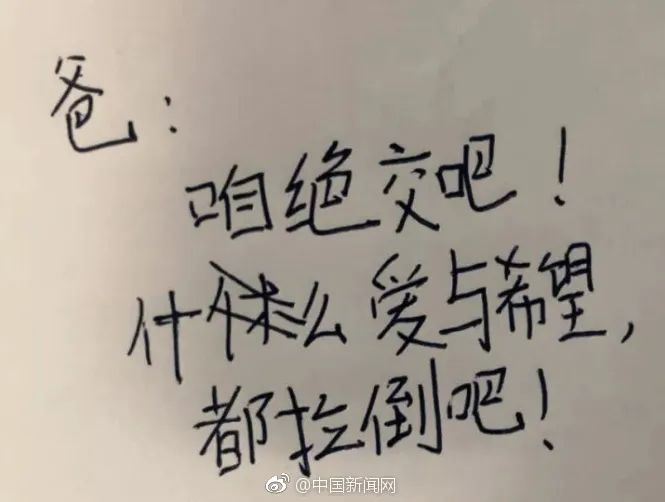 爸：
咱绝交吧！
什么爱与希望，
都拉倒吧！
@中国新闻网